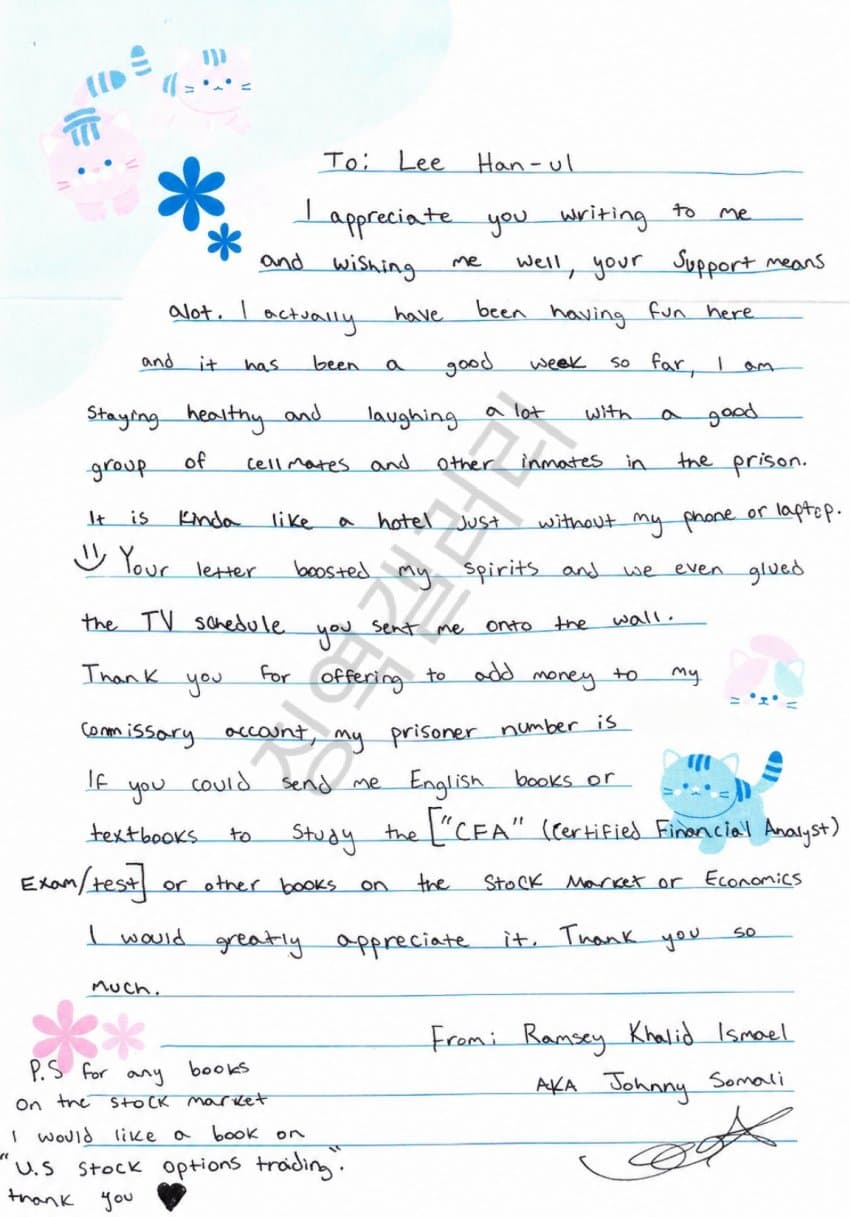 To: Lee Han-ul
I appreciate you writing to me
and wishing me well, your support means
alot. I actually have been having fun here
and it has been a good week so far, I am
Staying healthy and laughing a lot with a good
group of cellmates and other inmates in the prison.
It is kinda like a hotel just without my phone or laptop.
Your letter boosted my spirits and we even glued
the TV schedule you sent me onto the wall.
Thank you for offering to add money to my
Commissary account, my prisoner number is
If you could send me English books or
textbooks to Study the ["CFA" (Certified Financial Analyst)
Exam/test] or other books on the Stock Market or Economics
I would greatly appreciate it. Thank you so
much.
From: Ramsey Khalid Ismael
AKA Johnny Somali
P.S for any books
on the stock market
I would like a book on
"U.S stock options trading".
thank you ♥
징역갤러리